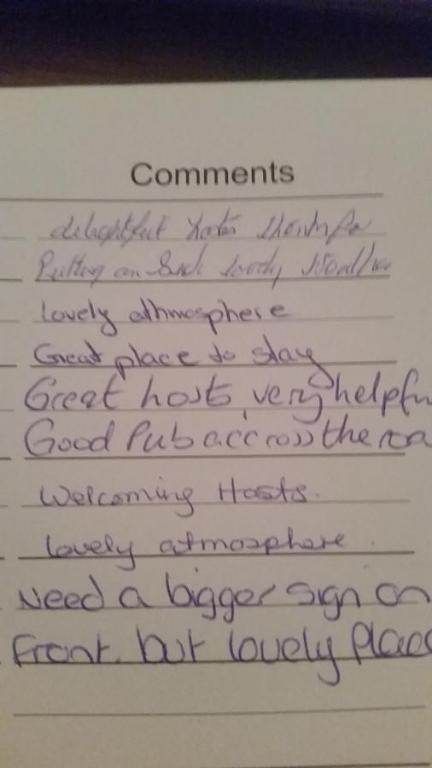 Comments
delightful
Putting on such lovely
Lovely athmosphere
Great place to stay
Great hosts, very helpfu
Good Pub accross the roa
Welcoming Hosts.
Lovely atmosphere.
Need a bigger sign on
Front. but lovely Place